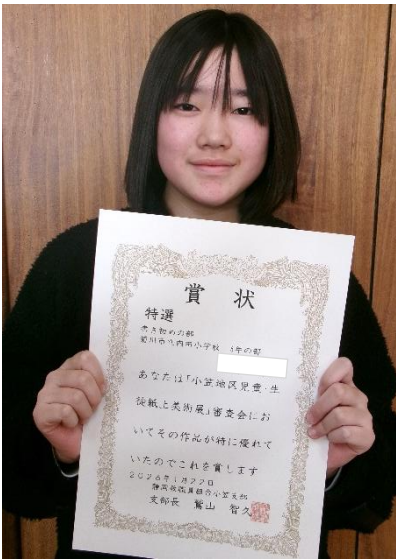 賞状
特選
書き初めの部
菊川市立内田小学校 6年の部
あなたは「小笠地区児童・生
徒紙上美術展」審査会にお
いてその作品が特に優れて
いたのでこれを賞します
2026年1月22日
静岡教職員組合小笠支部
支部長 鷲山 智久